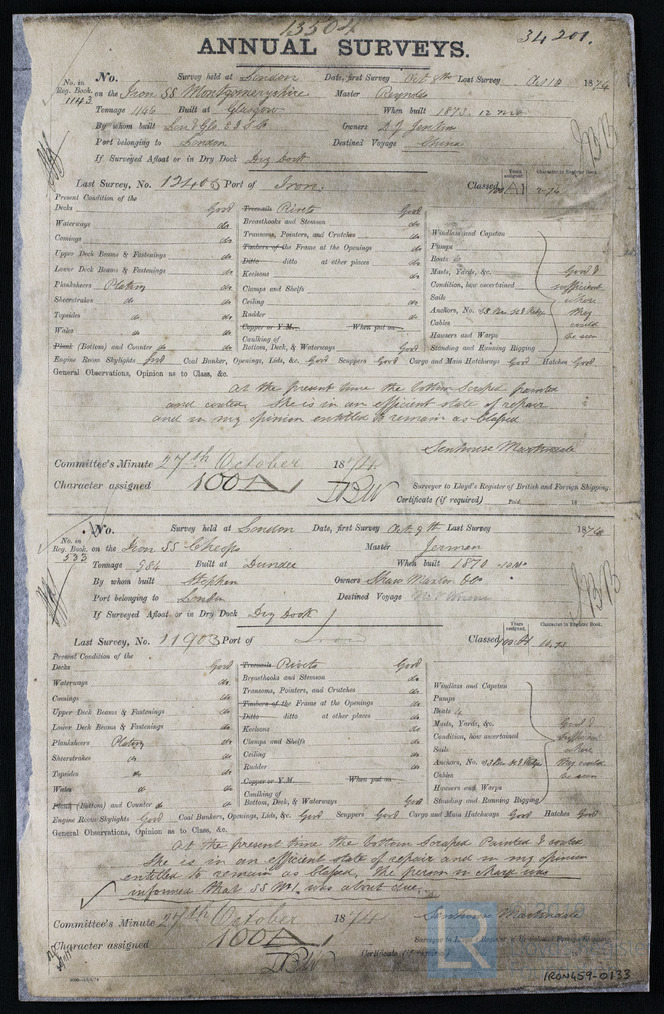 13504
34201.
ANNUAL SURVEYS.
No. in Reg. Book. 1143
No. Survey held at London Date, first Survey Oct 8th Last Survey Oct 10 1874
on the Iron SS Montgomeryshire Master Reynolds
Tonnage 1146 Built at Glasgow When built 1873. 12 mo
By whom built Lond & Glo Owners D J Jenkins
Port belonging to London Destined Voyage China
If Surveyed Afloat or in Dry Dock Dry Dock
Last Survey, No. Port of Iron
Years assigned. Character in Register Book.
Classed 100 A1 2-74
Present Condition of the
Decks Good
Waterways do
Comings do
Upper Deck Beams & Fastenings do
Lower Deck Beams & Fastenings do
Planksheers Plating do
Sheerstrakes do do
Topsides do do
Wales do do
Plank (Bottom) and Counter do do
Treenails Rivets Good
Breasthooks and Stemson do
Transoms, Pointers, and Crutches do
Timbers of the Frame at the Openings do
Ditto ditto at other places do
Keelsons do
Clamps and Shelfs
Ceiling do
Rudder do
Copper or Y.M. When put on
Caulking of
Bottom, Deck, & Waterways Good
Windlass and Capstan
Pumps
Boats 6
Masts, Yards, &c.
Condition, how ascertained
Sails
Anchors, No.
Cables
Hawsers and Warps
Standing and Running Rigging
Good &
sufficient
where
they
could
be seen
Engine Room Skylights Good Coal Bunker, Openings, Lids, &c. Good Scuppers Good Cargo and Main Hatchways Good Hatches Good
General Observations, Opinion as to Class, &c.
At the present time the bottom Scraped painted
and coated. She is in an efficient state of repair
and in my opinion entitled to remain as Classed
Senhouse Martindale
Committee's Minute 27th October 1874
Character assigned 100A
Surveyor to Lloyd's Register of British and Foreign Shipping.
Certificate (if required) Paid, 18
No. in Reg. Book. 533
No. Survey held at London Date, first Survey Oct 9th Last Survey 1874
on the Iron SS Cheops Master Jerman
Tonnage 984 Built at Dundee When built 1870 10 Mo
By whom built Stephen Owners Shaw Maxton & Co
Port belonging to London Destined Voyage
If Surveyed Afloat or in Dry Dock Dry Dock
Last Survey, No. 11903 Port of Iron
Years assigned. Character in Register Book.
Classed 10.73
Present Condition of the
Decks Good
Waterways do
Comings do
Upper Deck Beams & Fastenings do
Lower Deck Beams & Fastenings do
Planksheers Plating do
Sheerstrakes do do
Topsides do do
Wales do do
Plank (Bottom) and Counter do do
Treenails Rivets Good
Breasthooks and Stemson do
Transoms, Pointers, and Crutches do
Timbers of the Frame at the Openings do
Ditto ditto at other places do
Keelsons do
Clamps and Shelfs do
Ceiling do
Rudder do
Copper or Y.M. When put on
Caulking of
Bottom, Deck, & Waterways Good
Windlass and Capstan
Pumps
Boats 4
Masts, Yards, &c.
Condition, how ascertained
Sails
Anchors, No.
Cables
Hawsers and Warps
Standing and Running Rigging
Good &
sufficient
where
they could
be seen
Engine Room Skylights Good Coal Bunkers, Openings, Lids, &c. Good Scuppers Good Cargo and Main Hatchways Good Hatches Good
General Observations, Opinion as to Class, &c.
At the present time the bottom Scraped Painted & coated
She is in an efficient state of repair and in my opinion
entitled to remain as Classed. The person in charge was
informed that SS No1. was about due.
Senhouse Martindale
Committee's Minute 27th October 1874
Character assigned 100A
Surveyor to Lloyd's Register of British and Foreign Shipping.
LR
IRON459-0133